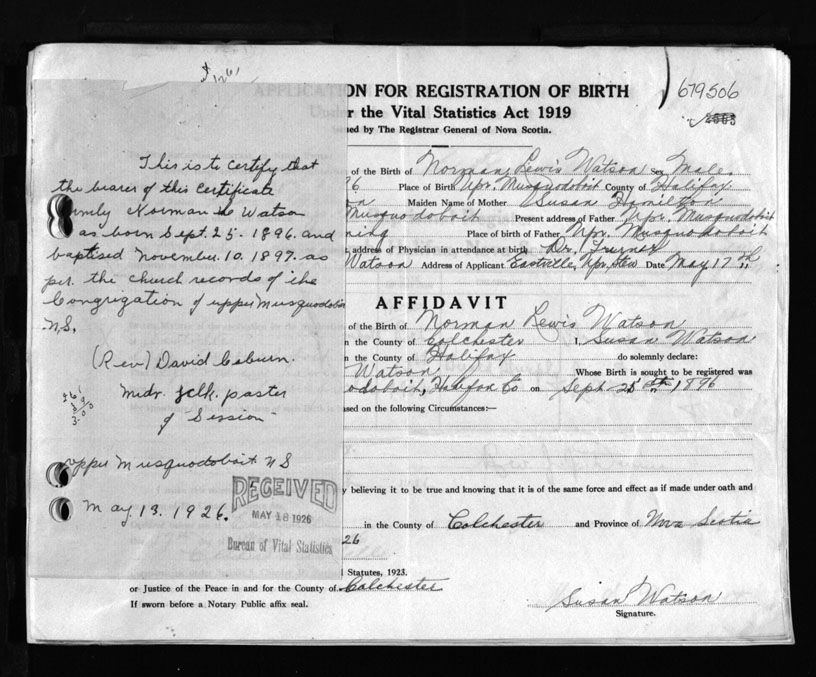 679506
APPLICATION FOR REGISTRATION OF BIRTH
Under the Vital Statistics Act 1919
ed by The Registrar General of Nova Scotia.
of the Birth of Norman Lewis Watson Sex Male.
26 Place of Birth Upr. Musquodoboit County of Halifax
on Maiden Name of Mother Susan Hamilton
Musquodoboit Present address of Father Upr. Musquodoboit
ning Place of birth of Father Upr. Musquodoboit
address of Physician in attendance at birth Dr.
Watson Address of Applicant Eastville, Upr. Stew Date May 17th
AFFIDAVIT
of the Birth of Norman Lewis Watson
n the County of Colchester I, Susan Watson
n the County of Halifax do solemnly declare:
Watson Whose Birth is sought to be registered was
odoboit, Halifax Co on Sept 25th 1896
sed on the following Circumstances:—
y believing it to be true and knowing that it is of the same force and effect as if made under oath and
in the County of Colchester and Province of Nova Scotia
26
Statutes, 1923.
or Justice of the Peace in and for the County of Colchester
If sworn before a Notary Public affix seal.
Susan Watson
Signature.
This is to certify that
the bearer of this certificate
Norman Watson
as born Sept. 25. 1896. and
baptised November. 10. 1897. as
per. the church records of the
Congregation of upper Musquodoboit
N.S.
(Rev) David Coburn.
pastor
of Session
upper Musquodoboit N S
May 13. 1926.
RECEIVED
MAY 18 1926
Bureau of Vital Statistics